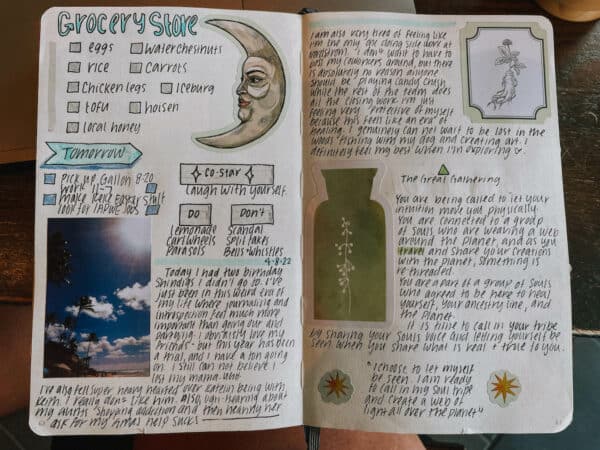 Grocery Store
eggs
Waterchestnuts
rice
Carrots
Chicken legs
Iceburg
tofu
hoisin
local honey
Tomorrow
Pick up Gallon 8-20
work 11-7
make Easter stuff
look for
Co-Star
Laugh with yourself.
DO
Don't
Lemonade
Cartwheels
Parasols
Scandal
Split takes
Bells + whistles
4-8-22
Today I had two birthday
shindigs I didn't go to. I've
just been in this weird era of
my life where journaling and
introspection feel much more
important than going out and
partying. I obviously love my
friends - but this year has been
a trial, and I have a ton going
on. I still can not believe I
lost my mama. Ugh.
I've also felt super heavy hearted over being with
Keith. I really don't like him. also, ugh - hearing about
my aunts' shopping addiction and then hearing her
ask for my Nmas help sucks
I am also very tired of feeling like
I'm the only one doing side work at
nordstrom. I don't want to have to
boss my coworkers around, but there
is absolutely no reason anyone
should be playing candy crush
while the rest of the team does
all the closing work. I'm just
feeling very protective of myself
because this feels like an era of
healing. I genuinely can not wait to be lost in the
woods fishing with my dog and creating art. I
definitely feel my best when I'm exploring
The Great Gathering
You are being called to let your
intuition move you physically.
You are connected to a group
of souls who are weaving a web
around the planet, and as you
travel and share your creations
with the planet, something is
re-threaded.
You are a part of a group of souls
who agreed to be here to heal
yourself, your ancestry line, and
the planet.
It is time to call in your tribe
by sharing your souls voice and letting yourself be
seen when you share what is real + true to you.
"I choose to let myself
be seen. I am ready
to call in my soul tribe
and create a web of
light all over the planet"